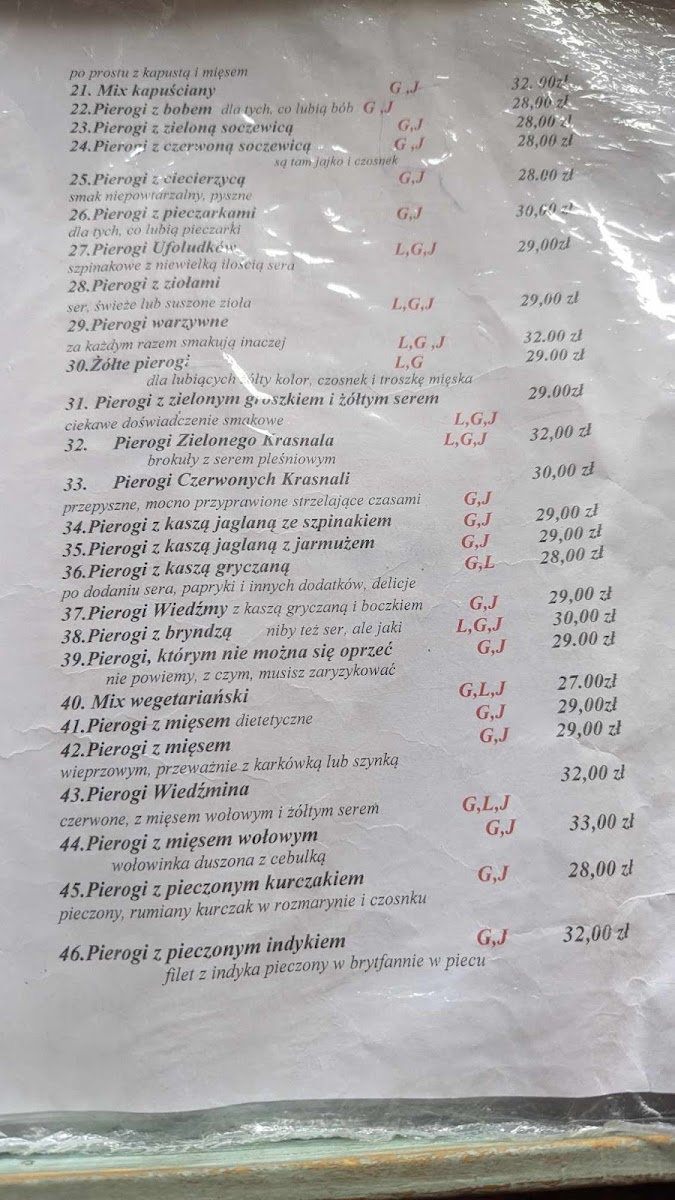 po prostu z kapustą i mięsem
21. Mix kapuściany G,J 32.00zł
22.Pierogi z bobem dla tych, co lubią bób G,J 28,00 zł
23.Pierogi z zieloną soczewicą G,J 28,00 zł
24.Pierogi z czerwoną soczewicą G,J 28,00 zł
są tam jajko i czosnek
25.Pierogi z ciecierzycą G,J 28.00 zł
smak niepowtarzalny, pyszne
26.Pierogi z pieczarkami G,J 30,00 zł
dla tych, co lubią pieczarki
27.Pierogi Ufoludków L,G,J 29,00zł
szpinakowe z niewielką ilością sera
28.Pierogi z ziołami
ser, świeże lub suszone zioła L,G,J 29,00 zł
29.Pierogi warzywne
za każdym razem smakują inaczej L,G ,J 32.00 zł
30.Żółte pierogi L,G 29.00 zł
dla lubiących żółty kolor, czosnek i troszkę mięska
31. Pierogi z zielonym groszkiem i żółtym serem 29.00zł
ciekawe doświadczenie smakowe L,G,J
32. Pierogi Zielonego Krasnala L,G,J 32,00 zł
brokuły z serem pleśniowym
33. Pierogi Czerwonych Krasnali 30,00 zł
przepyszne, mocno przyprawione strzelające czasami G,J
34.Pierogi z kaszą jaglaną ze szpinakiem G,J 29,00 zł
35.Pierogi z kaszą jaglaną z jarmużem G,J 29,00 zł
36.Pierogi z kaszą gryczaną G,L 28,00 zł
po dodaniu sera, papryki i innych dodatków, delicje
37.Pierogi Wiedźmy z kaszą gryczaną i boczkiem G,J 29,00 zł
38.Pierogi z bryndzą niby też ser, ale jaki L,G,J 30,00 zł
39.Pierogi, którym nie można się oprzeć G,J 29.00 zł
nie powiemy, z czym, musisz zaryzykować
40. Mix wegetariański G,L,J 27.00zł
41.Pierogi z mięsem dietetyczne G,J 29,00zł
42.Pierogi z mięsem G,J 29,00 zł
wieprzowym, przeważnie z karkówką lub szynką
43.Pierogi Wiedźmina 32,00 zł
czerwone, z mięsem wołowym i żółtym serem G,L,J
44.Pierogi z mięsem wołowym G,J 33,00 zł
wołowinka duszona z cebulką
45.Pierogi z pieczonym kurczakiem G,J 28,00 zł
pieczony, rumiany kurczak w rozmarynie i czosnku
46.Pierogi z pieczonym indykiem G,J 32,00 zł
filet z indyka pieczony w brytfannie w piecu